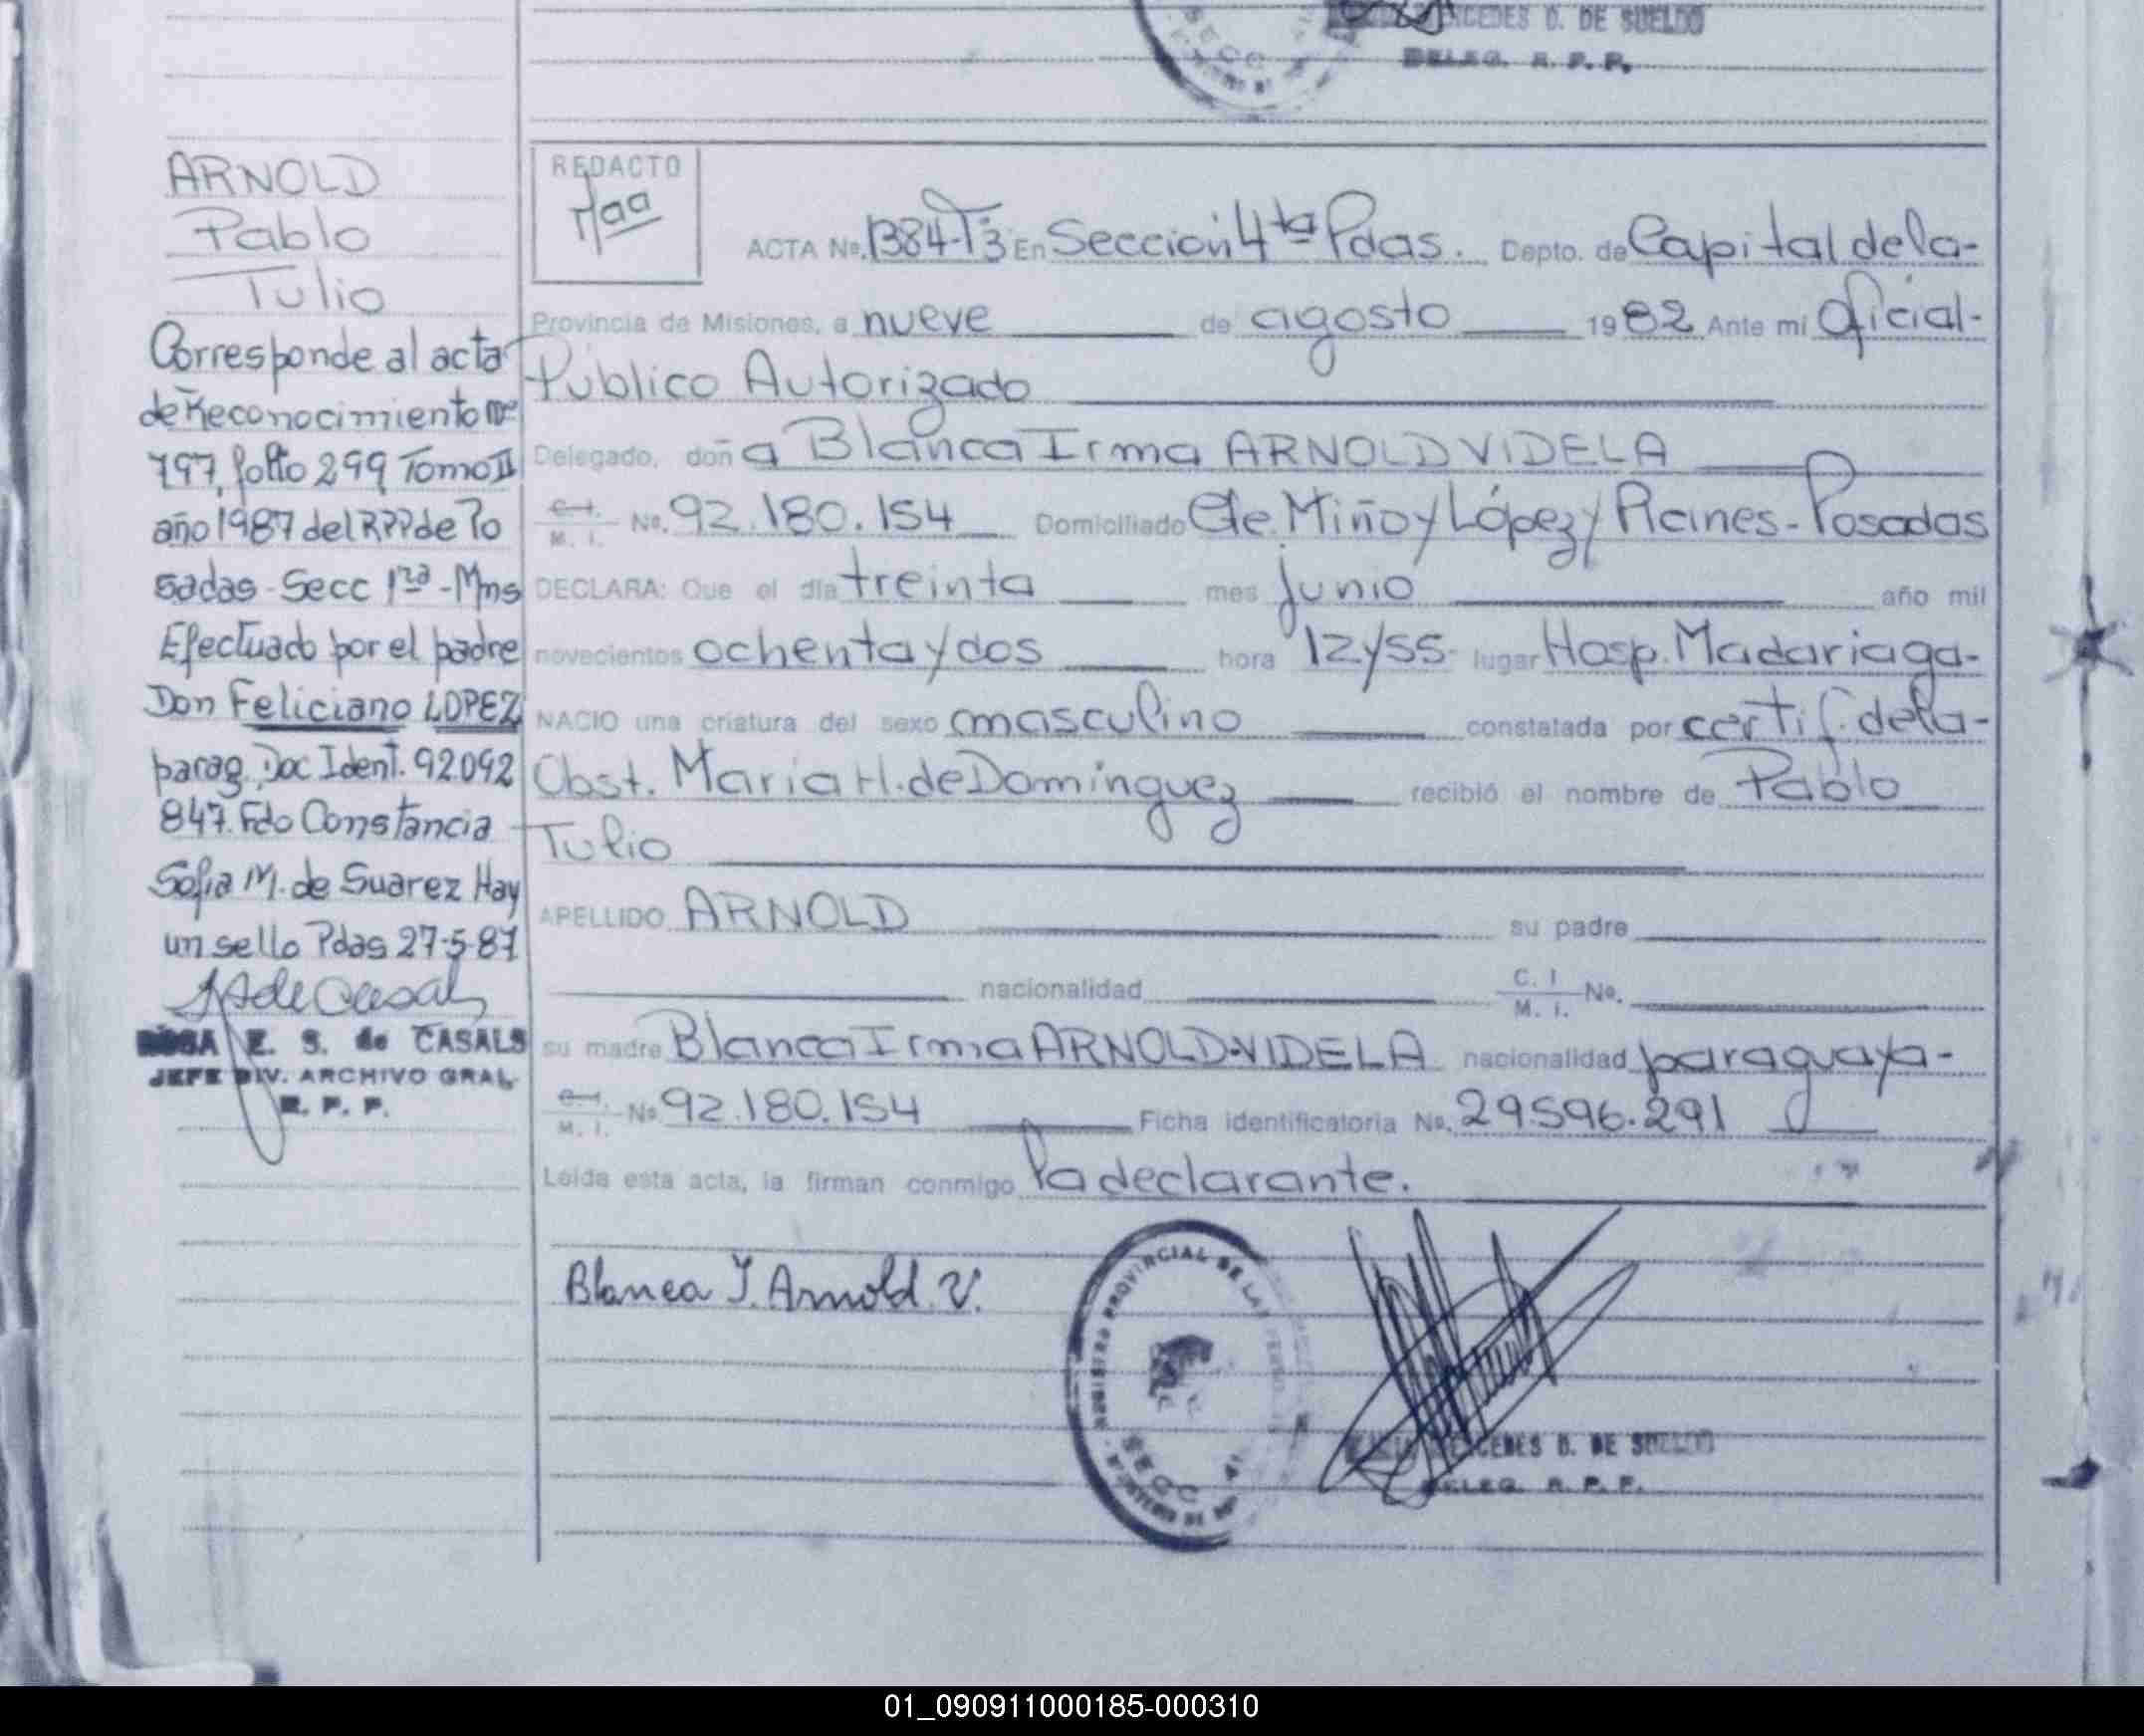 CEDES D. DE SUELDO
DELEG. R. P. P.
ARNOLD
Pablo
Tulio
Corresponde al acta
de Reconocimiento Nº
797, folio 299 Tomo II
año 1987 del RPP de Po
sadas - Secc 1ra - Mns
Efectuado por el padre
Don Feliciano LOPEZ
parag. Doc Ident. 92092
847. Fdo Constancia
Sofia M. de Suarez Hay
un sello Pdas 27-5-87
E. S. de CASALS
JEFE DIV. ARCHIVO GRAL.
R. P. P.
REDACTO
ACTA Nº. 1384-T3 En Seccion 4ta Pdas. Depto. de Capital de la-
Provincia de Misiones, a nueve de agosto 1982 Ante mi Oficial-
Público Autorizado
Delegado, doña Blanca Irma ARNOLD VIDELA
C. I.
M. I. Nº. 92.180.154 Domiciliado Cle. Miño y López y Planes - Posadas
DECLARA: Que el día treinta mes junio año mil
novecientos ochenta y dos hora 12 y 55- lugar Hosp. Madariaga-
NACIO una criatura del sexo masculino constatada por certif. de la-
Obst. María H. de Domínguez recibió el nombre de Pablo
Tulio
APELLIDO ARNOLD su padre
nacionalidad C. I
M. I. Nº.
su madre Blanca Irma ARNOLD-VIDELA nacionalidad paraguaya-
C. I.
M. I. Nº 92.180.154 Ficha identificatoria Nº. 29.596.291
Leída esta acta, la firman conmigo la declarante.
Blanca I. Arnold. V.
REGISTRO PROVINCIAL DE LAS
SECC
CEDES D. DE SUELDO
DELEG. R. P. P.
01_090911000185-000310